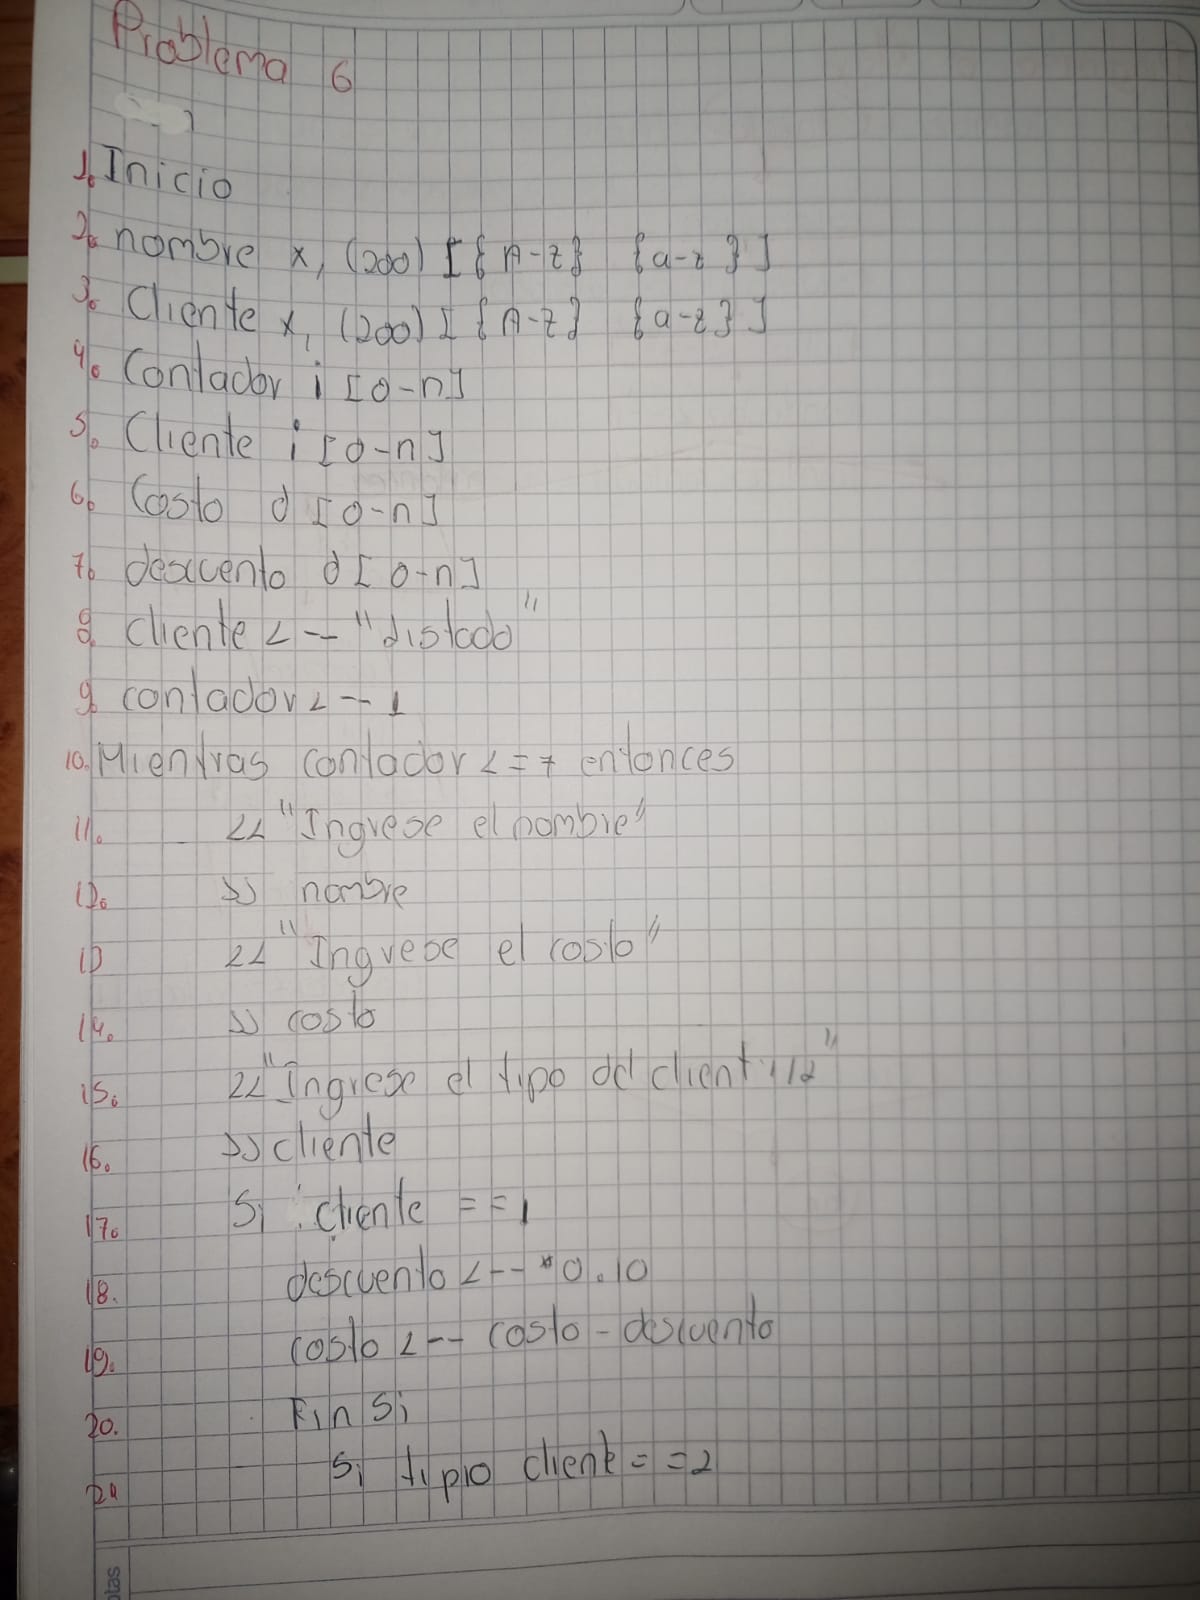 Problema 6
1. Inicio
2. nombre x, (200) [{A-z} {a-z}]
3. Cliente x, (200) [{A-z} {a-z}]
4. Contador i [0-n]
5. Cliente i [0-n]
6. Costo d [0-n]
7. descuento d [0-n]
8. cliente <-- "distado"
9. contador <-- 1
10. Mientras contador <= 7 entonces
11. << "Ingrese el nombre"
12. >> nombre
13 << "Ingrese el costo"
14. >> costo
15. << "Ingrese el tipo del client 1/2"
16. >> cliente
17. Si cliente == 1
18. descuento <-- *0.10
19. costo <-- costo - descuento
20. Fin Si
21 Si tipio cliente == 2
otas